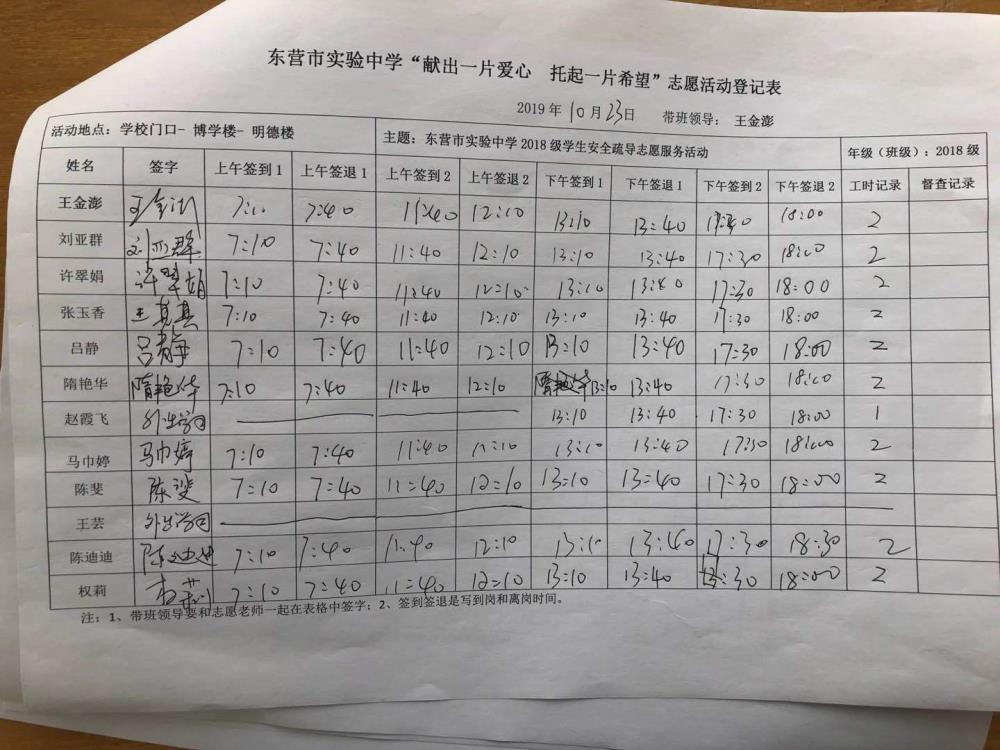 东营市实验中学“献出一片爱心 托起一片希望”志愿活动登记表
2019 年 10 月 23 日 带班领导： 王金澎
活动地点：学校门口- 博学楼- 明德楼 主题：东营市实验中学 2018 级学生安全疏导志愿服务活动 年级（班级）：2018 级
姓名 签字 上午签到 1 上午签退 1 上午签到 2 上午签退 2 下午签到 1 下午签退 1 下午签到 2 下午签退 2 工时记录 督查记录
王金澎 王金澎 7:10 7:40 11:40 12:10 13:10 13:40 17:30 18:00 2
刘亚群 刘亚群 7:10 7:40 11:40 12:10 13:10 13:40 17:30 18:00 2
许翠娟 许翠娟 7:10 7:40 11:40 12:10 13:10 13:40 17:30 18:00 2
张玉香 7:10 7:40 11:40 12:10 13:10 13:40 17:30 18:00 2
吕静 吕静 7:10 7:40 11:40 12:10 13:10 13:40 17:30 18:00 2
隋艳华 隋艳华 7:10 7:40 11:40 12:10 隋艳华 13:10 13:40 17:30 18:00 2
赵霞飞 外出学习 13:10 13:40 17:30 18:00 1
马巾婷 马巾婷 7:10 7:40 11:40 12:10 13:10 13:40 17:30 18:00 2
陈斐 陈斐 7:10 7:40 11:40 12:10 13:10 13:40 17:30 18:00 2
王芸 外出学习
陈迪迪 陈迪迪 7:10 7:40 11:40 12:10 13:10 13:40 17:30 18:30 2
权莉 权莉 7:10 7:40 11:40 12:10 13:10 13:40 :30 18:00 2
注：1、带班领导要和志愿老师一起在表格中签字；2、签到签退是写到岗和离岗时间。